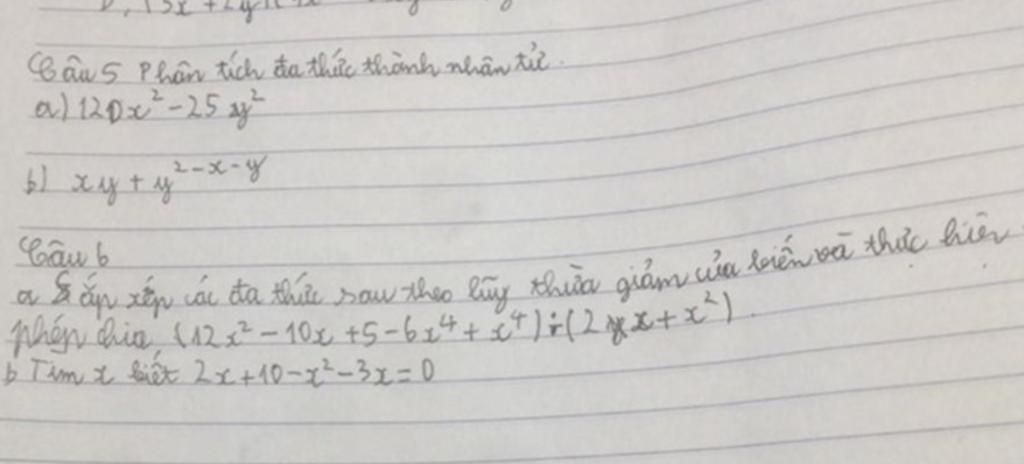 Câu 5 Phân tích đa thức thành nhân tử.
a) 120x² - 25y²
b) xy + y²⁻ˣ⁻ʸ
Câu 6
a Sắp xếp các đa thức sau theo lũy thừa giảm của biến và thức hiên
phép chia (12x² - 10x + 5 - 6x⁴ + x⁴) : (2 x + x²).
b Tìm x biết 2x + 10 - x² - 3x = 0